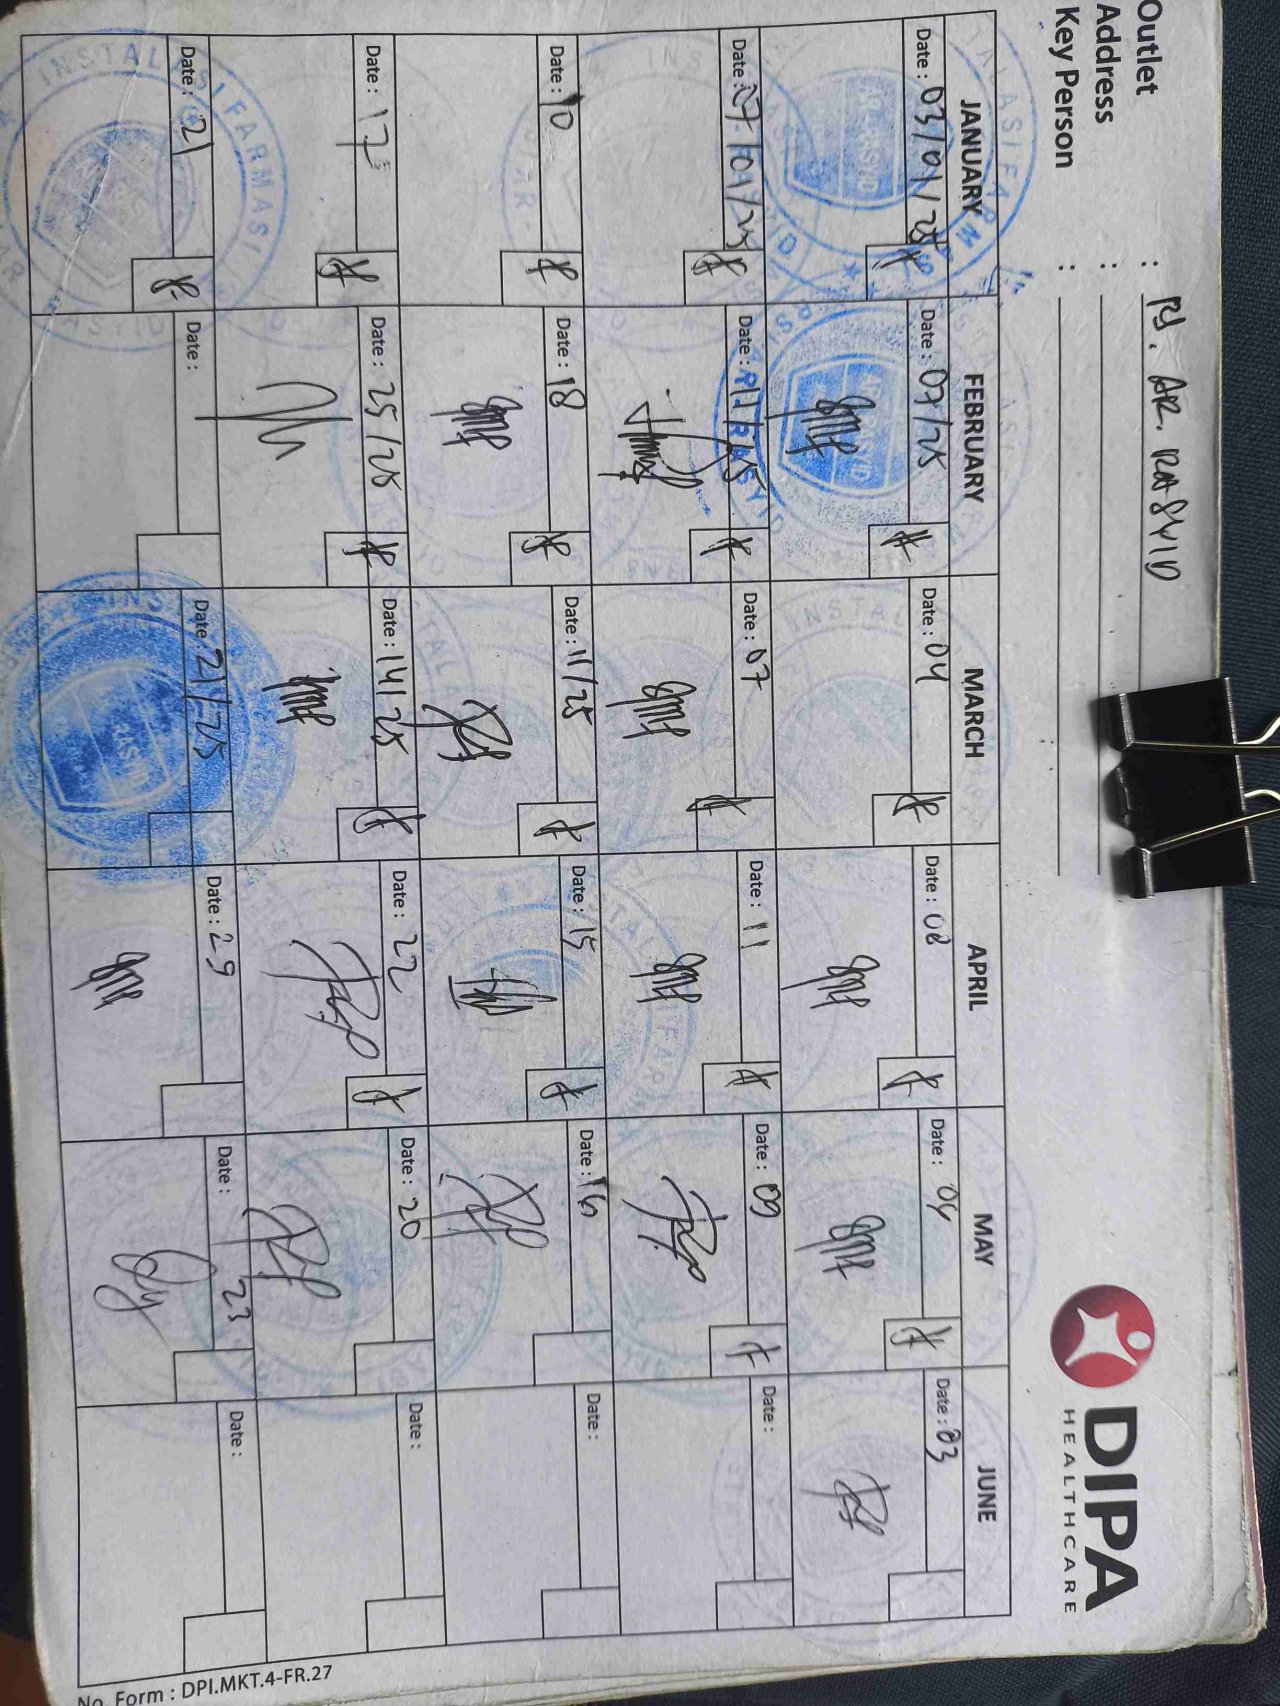 Outlet : RS. AR. RASYID
Address :
Key Person :
DIPA
HEALTHCARE
JANUARY FEBRUARY MARCH APRIL MAY JUNE
Date : 03/01/25 Date : 07/25 Date : 04 Date : 08 Date : Date : 03
Date : Date : Date : 07 Date : 11 Date : 09 Date :
Date : 10 Date : 18 Date : 11/25 Date : 15 Date : 16 Date :
Date : 17 Date : 25/25 Date : 14/25 Date : 22 Date : 20 Date :
Date : 21 Date : Date : 21/25 Date : 29 Date : 23 Date :
INSTALASI FARMASI
AR RASYID
No. Form : DPI.MKT.4-FR.27